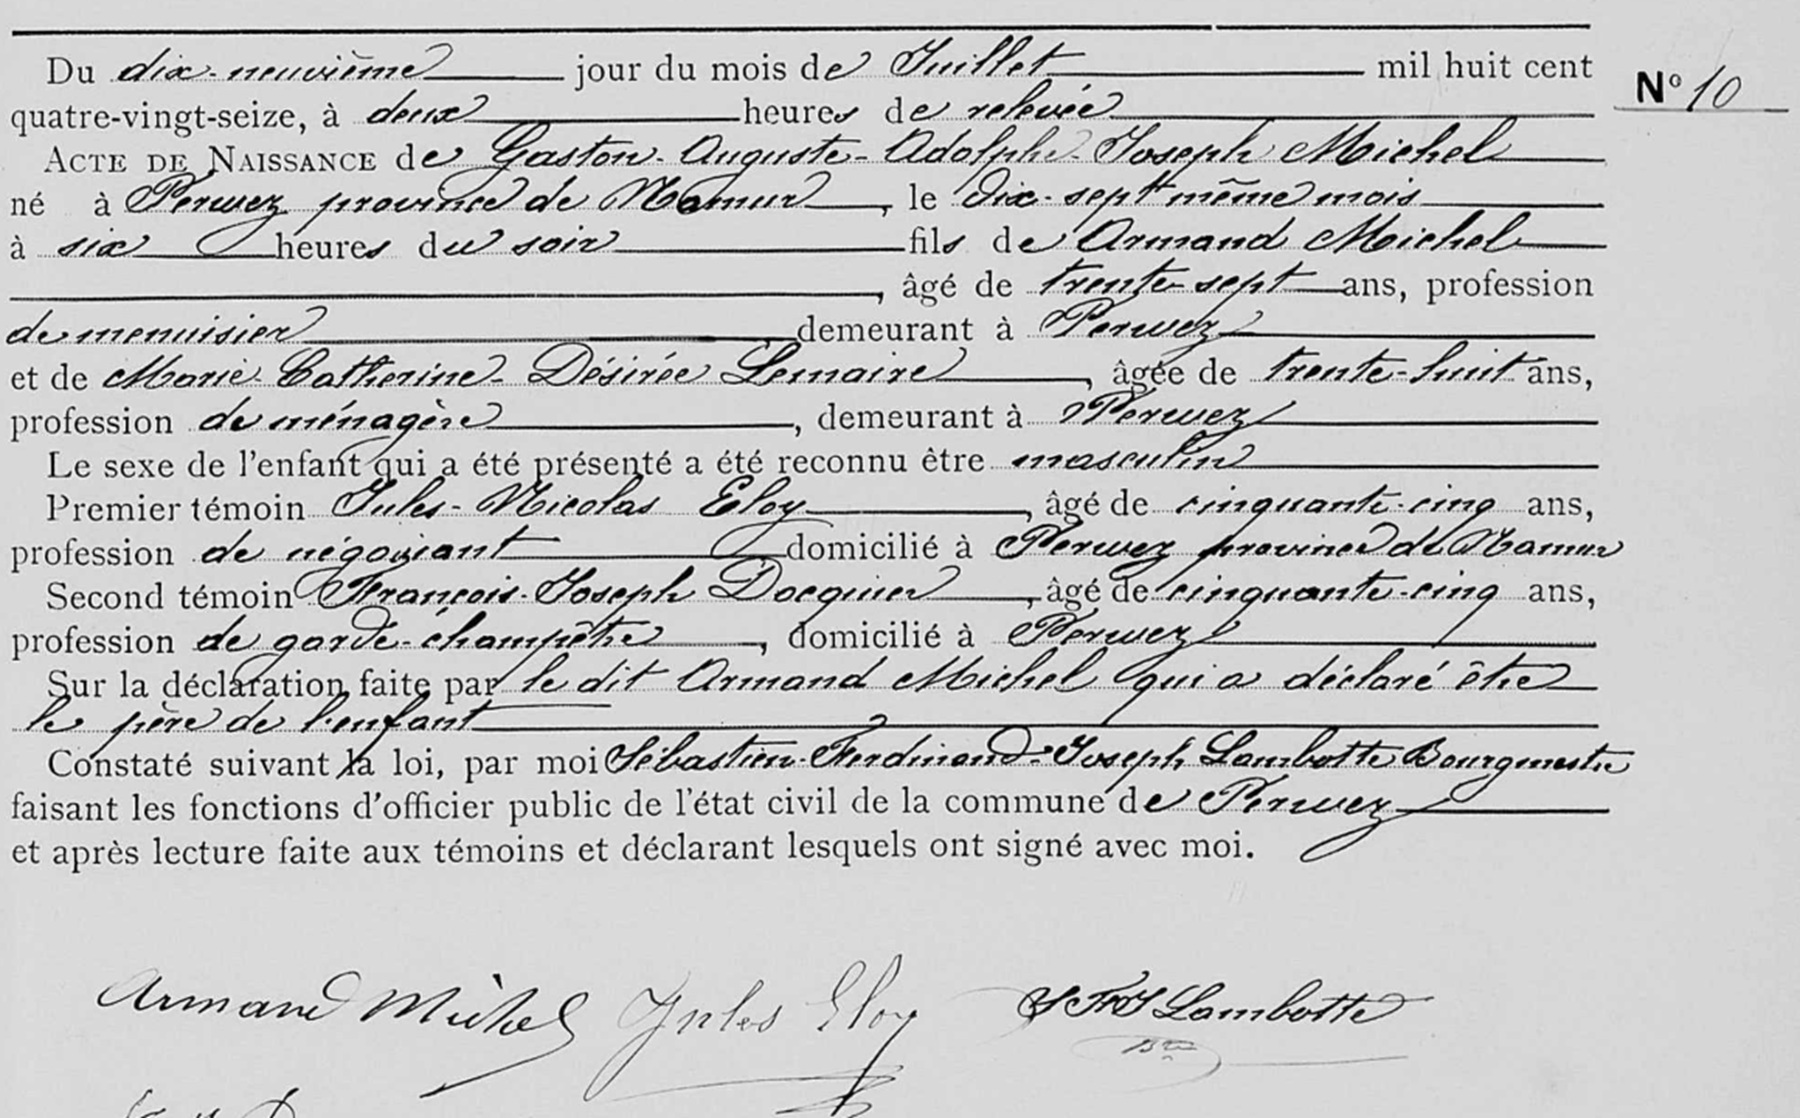 Du dix-neuvième jour du mois de Juillet mil huit cent
Nº 10
quatre-vingt-seize, à deux heures de relevée
ACTE DE NAISSANCE de Gaston-Auguste-Adolphe-Joseph Michel
né à Perwez province de Namur, le dix-sept même mois
à six heures du soir fils de Armand Michel
, âgé de trente-sept ans, profession
de menuisier demeurant à Perwez
et de Marie-Catherine-Désirée Lemaire, âgée de trente-huit ans,
profession de ménagère, demeurant à Perwez
Le sexe de l'enfant qui a été présenté a été reconnu être masculin
Premier témoin Jules-Nicolas Eloy, âgé de cinquante-cinq ans,
profession de négociant domicilié à Perwez province de Namur
Second témoin François-Joseph Docquier, âgé de cinquante-cinq ans,
profession de garde-champêtre, domicilié à Perwez
Sur la déclaration faite par le dit Armand Michel qui a déclaré être
le père de l'enfant
Constaté suivant la loi, par moi Sébastien-Ferdinand-Joseph Lambotte Bourgmestre
faisant les fonctions d'officier public de l'état civil de la commune de Perwez
et après lecture faite aux témoins et déclarant lesquels ont signé avec moi.
Armand Michel Jules Eloy S Fd J Lambotte